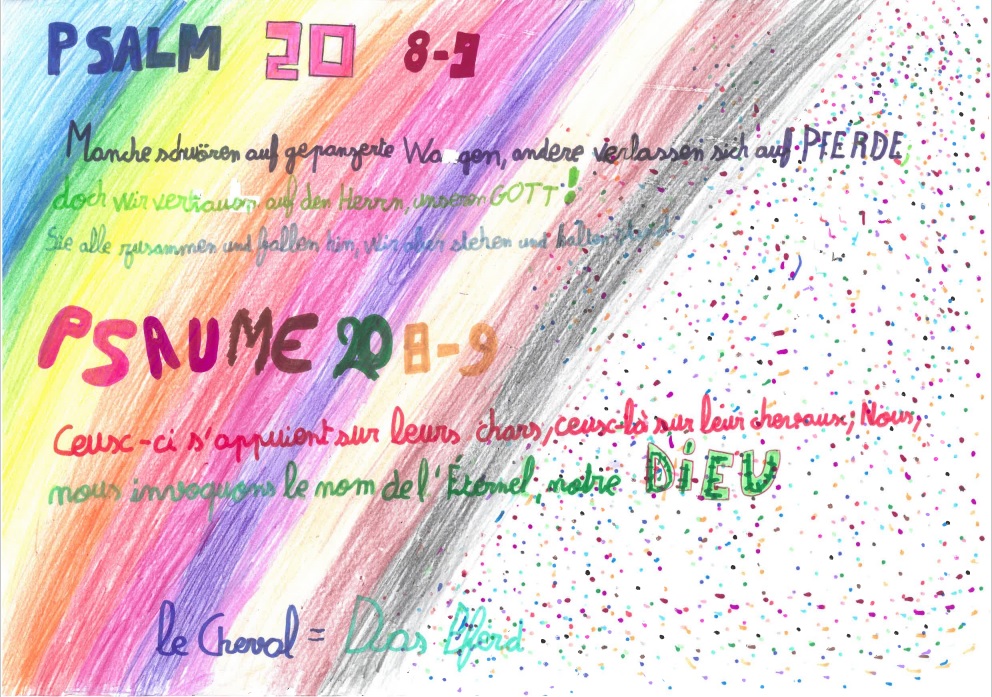 PSALM 20 8-9
Manche schwören auf gepanzerte Wagen, andere verlassen sich auf PFERDE
doch wir vertrauen auf den Herrn, unseren GOTT!
Sie alle zusammen und fallen hin, wir aber stehen und halten
PSAUME 20 8-9
Ceux-ci s'appuient sur leurs chars, ceux-là sur leur chevaux; Nous,
nous invoquons le nom de l'Éternel, notre DiEU
le Cheval = Das Pferd